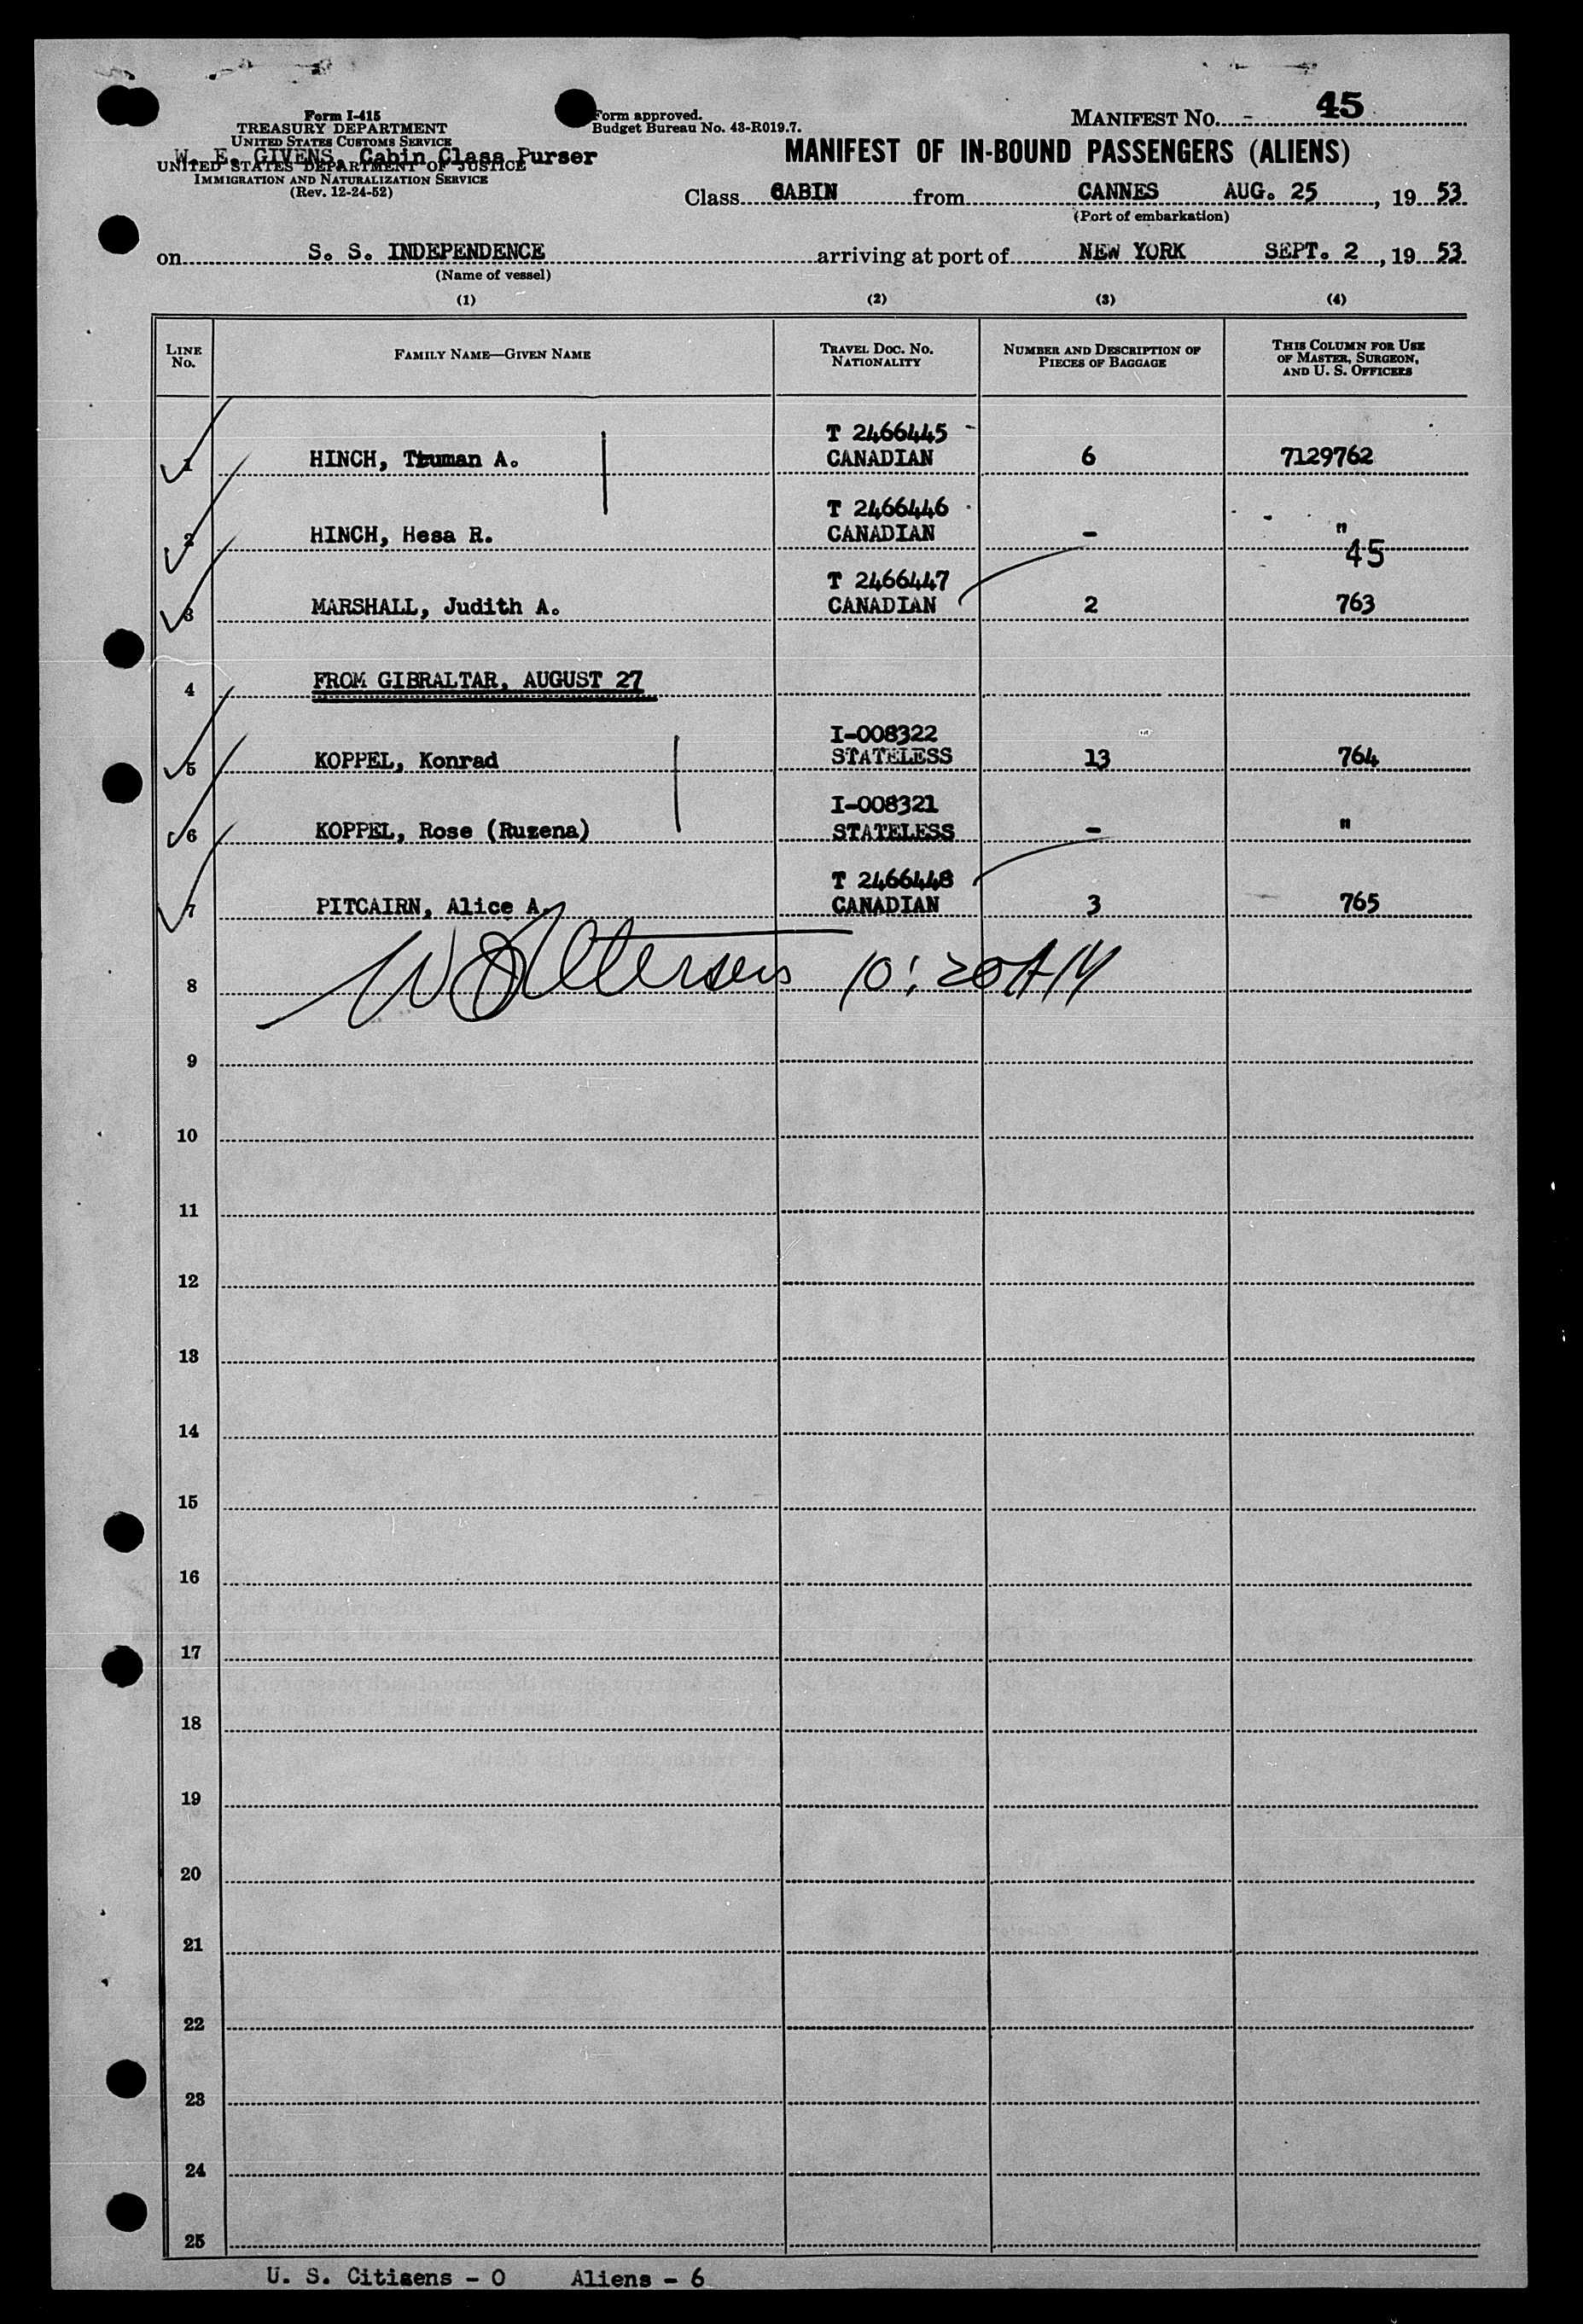 Form I-415
TREASURY DEPARTMENT
UNITED STATES CUSTOMS SERVICE
W. E. GIVENS, Cabin Class Purser
UNITED STATES DEPARTMENT OF JUSTICE
IMMIGRATION AND NATURALIZATION SERVICE
(Rev. 12-24-52)
Form approved.
Budget Bureau No. 43-R019.7.
MANIFEST NO. - 45
MANIFEST OF IN-BOUND PASSENGERS (ALIENS)
Class CABIN from CANNES AUG. 25, 1953
(Port of embarkation)
on S. S. INDEPENDENCE arriving at port of NEW YORK SEPT. 2, 1953
(Name of vessel)
(1) (2) (3) (4)
LINE NO. FAMILY NAME—GIVEN NAME TRAVEL DOC. NO. NATIONALITY NUMBER AND DESCRIPTION OF PIECES OF BAGGAGE THIS COLUMN FOR USE OF MASTER, SURGEON, AND U. S. OFFICERS
T 2466445
1 HINCH, Truman A. CANADIAN 6 7129762
T 2466446
2 HINCH, Hesa R. CANADIAN - "
45
T 2466447
3 MARSHALL, Judith A. CANADIAN 2 763
4 FROM GIBRALTAR, AUGUST 27
I-008322
5 KOPPEL, Konrad STATELESS 13 764
I-008321
6 KOPPEL, Rose (Ruzena) STATELESS - "
T 2466448
7 PITCAIRN, Alice A. CANADIAN 3 765
8 10:20 AM
9
10
11
12
13
14
15
16
17
18
19
20
21
22
23
24
25
U. S. Citizens - 0 Aliens - 6